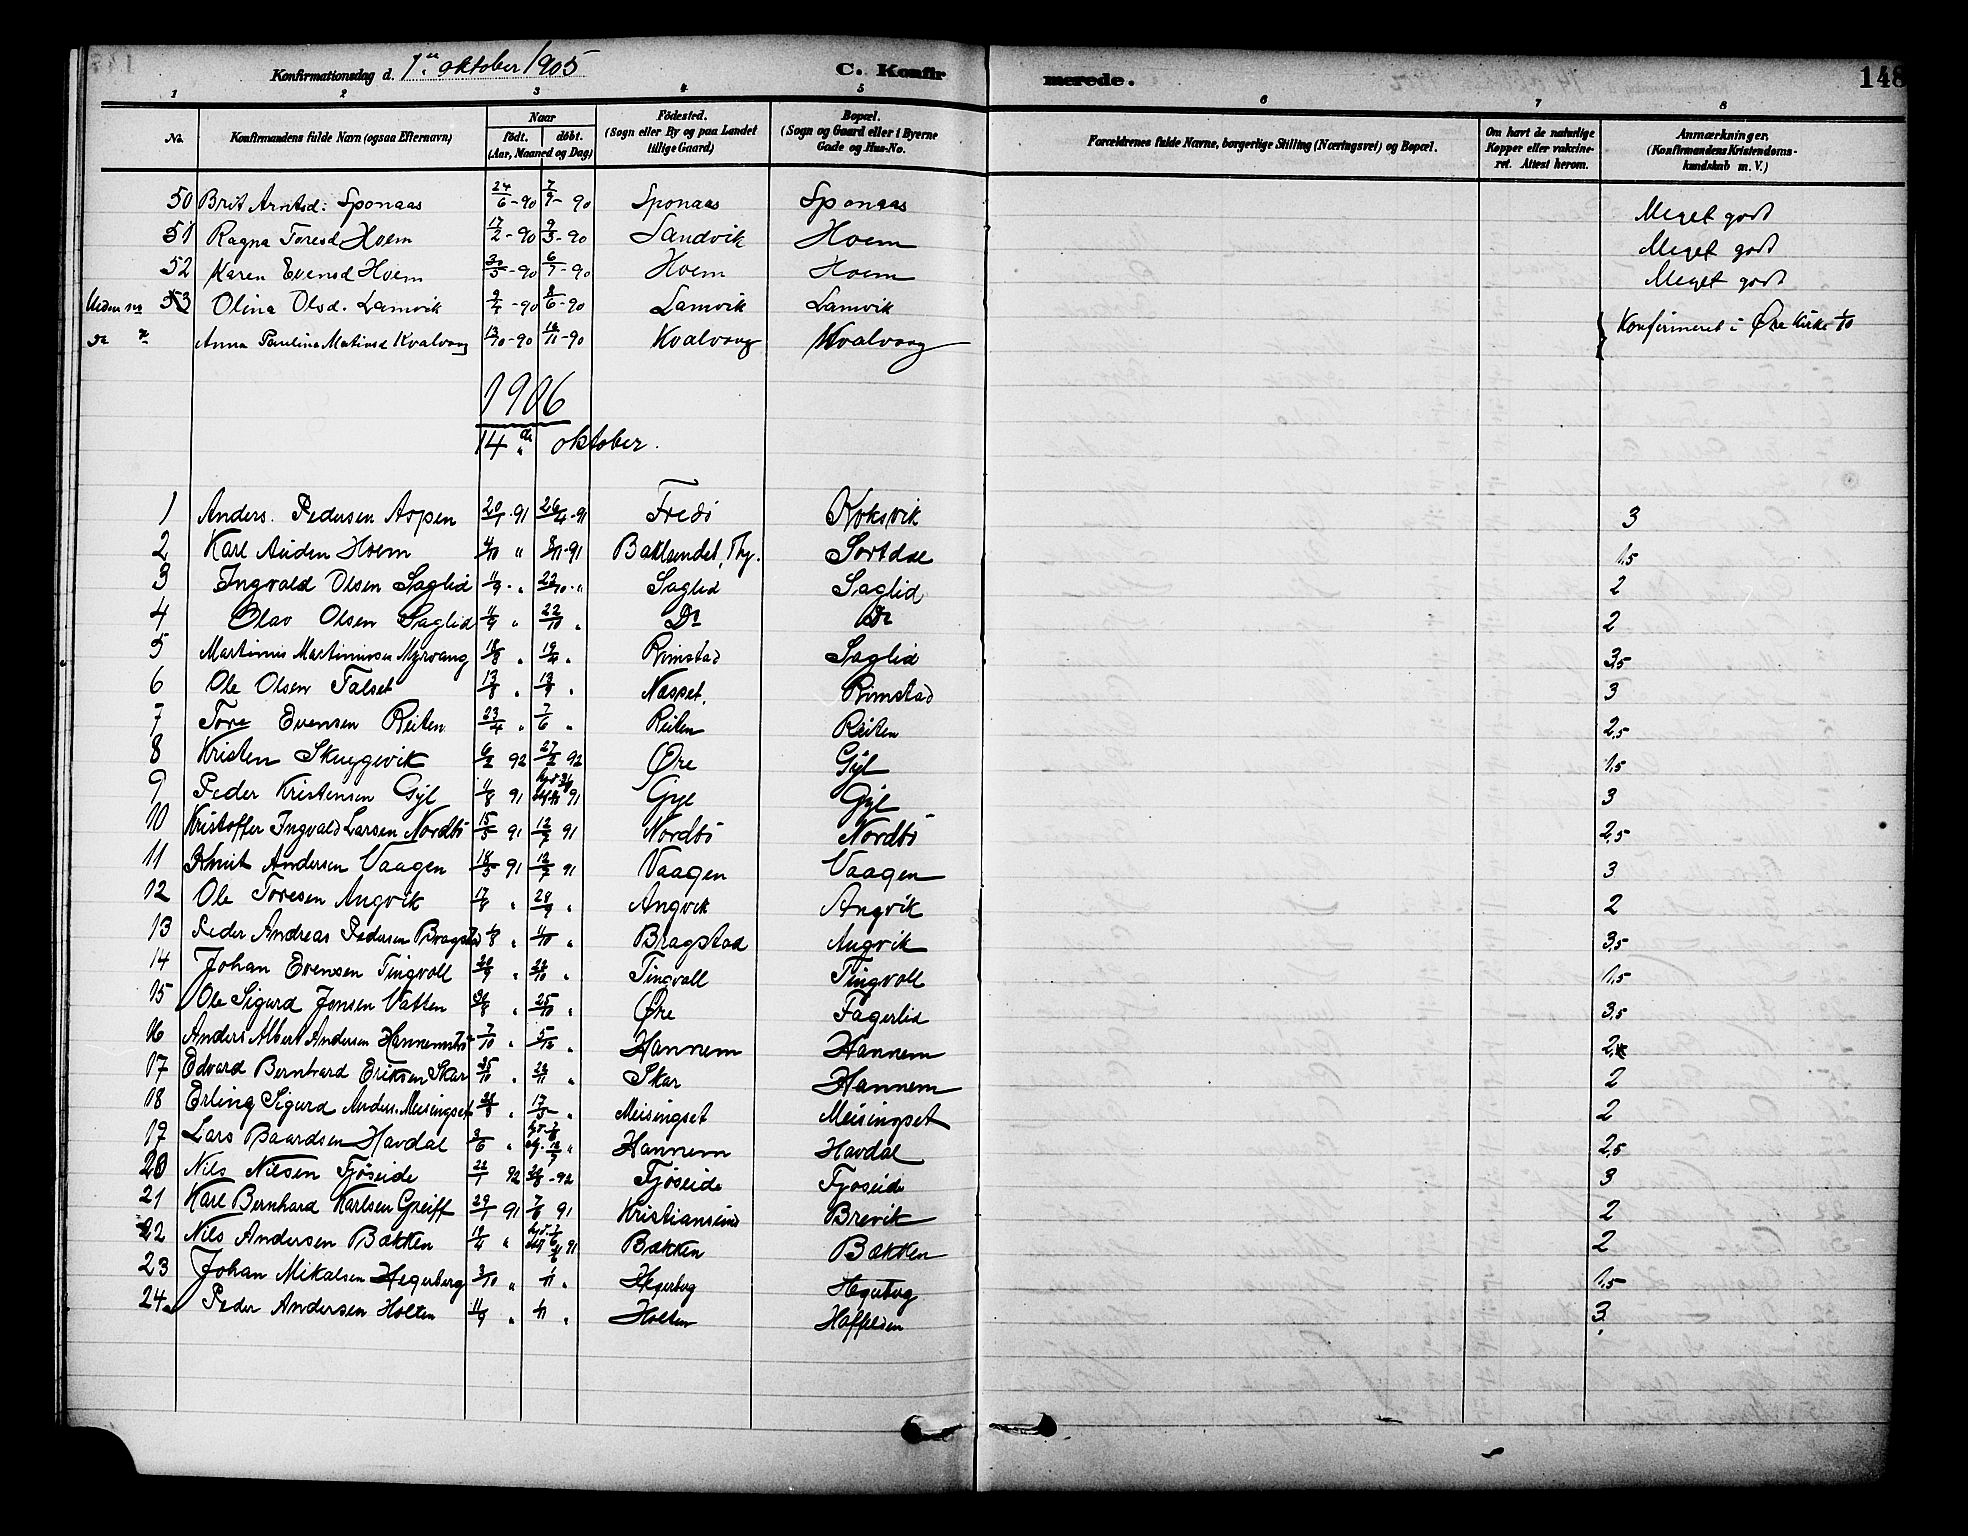 Konfirmationsdag d. 1ste oktober 1905 C. Konfirmerede. 148
1 2 3 4 5 6 7 8
No. Konfirmandens fulde Navn (ogsaa Efternavn) Naar født. døbt. (Aar, Maaned og Dag) Fødested. (Sogn eller By og paa Landet tillige Gaard) Bopæl. (Sogn og Gaard eller i Byerne Gade og Hus-No. Forældrenes fulde Navne, borgerlige Stilling (Næringsvei) og Bopæl. Om havt de naturlige Kopper eller vakcineret. Attest herom. Anmærkninger, (Konfirmandens Kristendomskundskab m. V.)
50 Brit Arntsd: Sponaas 24/6-90 7/9-90 Sponaas Sponaas Meget godt
51 Ragna Toresd Hoem 17/2-90 9/3-90 Sandvik Hoem Meget godt
52 Karen Evensd Hoem 30/5-90 6/7-90 Hoem Hoem Meget godt
53 Olina Olsd. Lamvik 8/6-90 Lamvik Lamvik
Anna Paulina Matiasd Kvalvaag 13/10-90 16/11-90 Kvalvaag Kvalvaag Konfirmeret i Øre Kirke 1/10
1906
14de oktober.
1 Anders Pedersen Aspen 20/1-91 26/4-91 Fredö Koksvik 3
2 Karl Auden Hoem 4/10 " 8/11-91 Baklandet, Thj. Sortdal 1,5
3 Ingvald Olsen Saglid 11/9 - " 22/10 - " Saglid Saglid 2
4 Olav Olsen Saglid 11/9 " 22/10 " Do Do 2
5 Martinus Martinusen Myrvang 18/3 " 19/4 " Rimstad Saglid 3,5
6 Ole Olsen Talset 13/8 " 13/9 " Næsset. Rimstad 3
7 Tore Evensen Reiten 23/4 " 7/6 " Reiten Reiten 2,5
8 Kristen Skuggevik 6/2 92 27/2 92 Øre Gyl 1,5
9 Peder Kristensen Gyl 11/8 91 91 Gyl Gyl 3
10 Kristoffer Ingvald Larsen Nordbö 15/5 91 12/7 91 Nordbö Nordbö 2,5
11 Knut Andersen Vaagen 18/5 91 12/7 91 Vaagen Vaagen 3
12 Ole Toresen Angvik 17/8 " 28/9 " Angvik Angvik 2
13 Peder Andreas Pedersen Bragstad " 11/10 " Bragstad Angvik 3,5
14 Johan Evensen Tingvoll 20/9 " 22/10 " Tingvoll Tingvoll 1,5
15 Ole Sigurd Jonsen Vatten " 25/10 " Øre Fagerlid 3,5
16 Anders Albert Andersen Hannemstö 7/10 " 5/12 " Hannem Hannem
17 Edvard Bernhard Eriksen Skar 25/10 " 22/11 " Skar Hannem 2
18 Erling Sigurd Anders. Meisingset " 17/5 " Meisingset Meisingset 2
19 Lars Baardsen Havdal 3/6 " Hannem Havdal 2,5
20 Nils Nilsen Fjöseide 22/1 92 92 Fjöseide Fjöseide 3
21 Karl Bernhard Karlsen Greiff 29/1 91 7/6 91 Kristiansund Brevik 2
22 Nils Andersen Bakken 19/4 " 91 Bakken Bakken 2
23 Johan Mikalsen Hegerberg 3/10 " 1/11 " Hegerberg Hegerberg 1,5
24 Peder Andersen Holten 11/9 " 1/11 " Holten 3